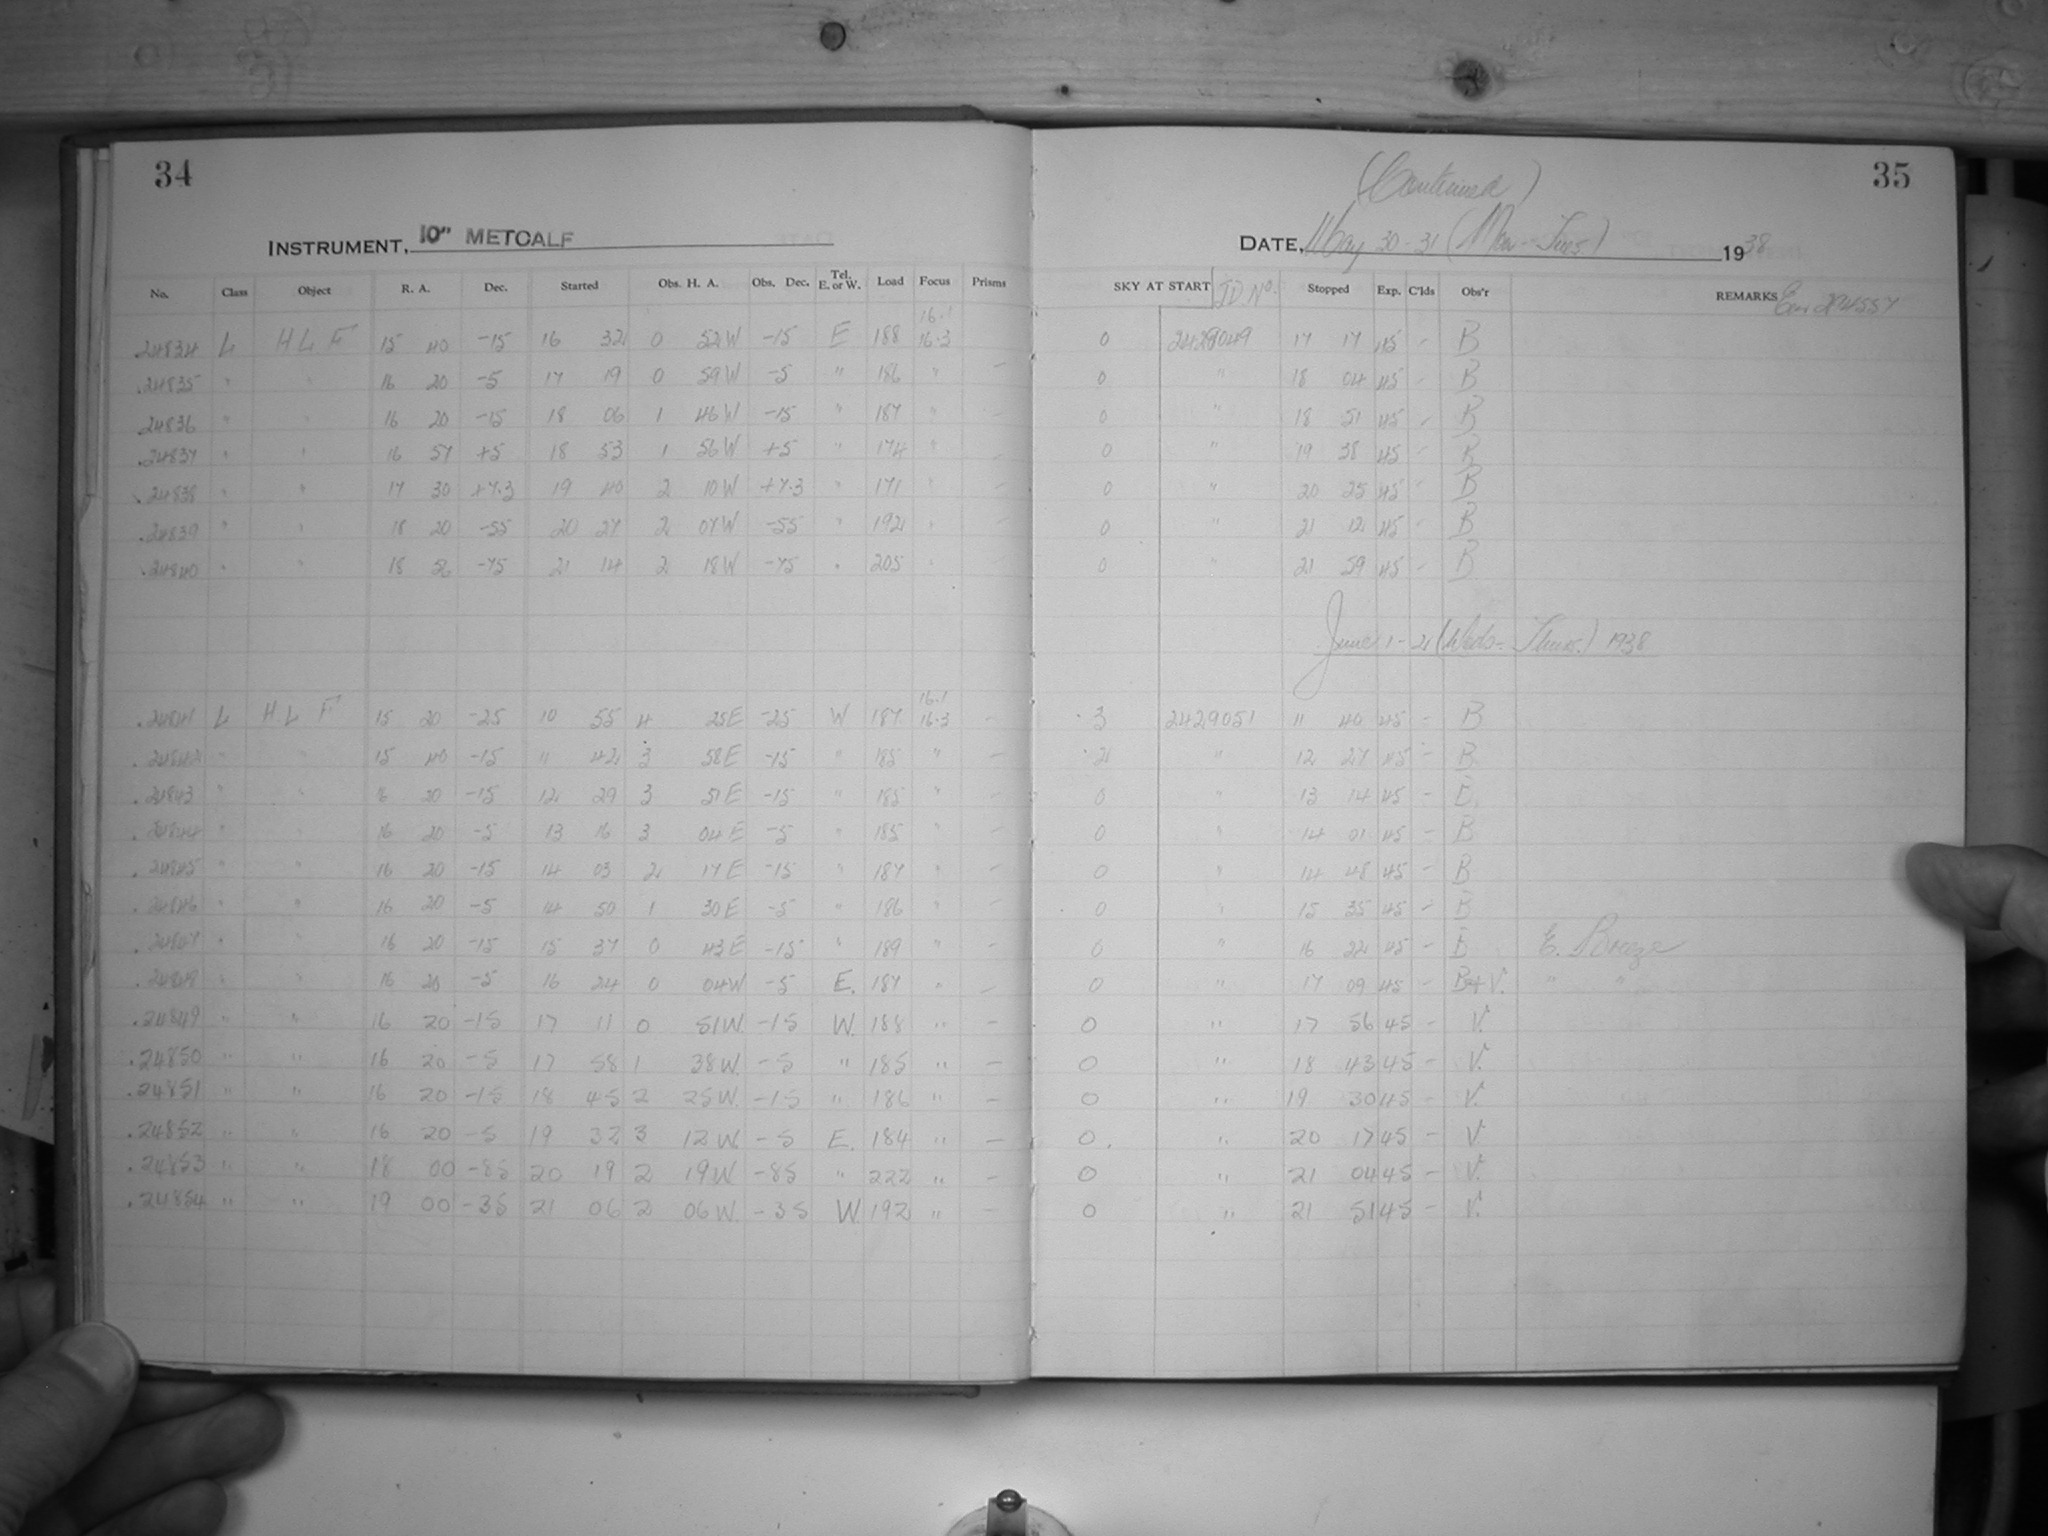 34
INSTRUMENT, 10" METCALF
No. Class Object R. A. Dec. Started Obs. H. A. Obs. Dec. Tel. E. or W. Load Focus Prisms
24834 L H L F 15 40 -15 16 32 0 52W -15 E 188 16.1 16.3
.24835 " " 16 20 -5 17 19 0 59W -5 " 186 " –
.24836 " " 16 20 -15 18 06 1 46W -15 " 187 " –
.24837 " " 16 57 +5 18 53 1 56W +5 " 174 " –
.24838 " " 17 30 +7.3 19 40 2 10W +7.3 " 171 " –
.24839 " " 18 20 -55 20 27 2 07W -55 " 192 " –
.24840 " " 18 56 -75 21 14 2 18W -75 " 205 " –
.24841 L H L F 15 20 -25 10 55 4 25E -25 W 187 16.1 16.3 –
.24842 " " 15 40 -15 11 42 3 58E -15 " 185 " –
.24843 " " 16 20 -15 12 29 3 51E -15 " 185 " –
.24844 " " 16 20 -5 13 16 3 04E -5 " 185 " –
.24845 " " 16 20 -15 14 03 2 17E -15 " 187 " –
.24846 " " 16 20 -5 14 50 1 30E -5 " 186 " –
.24847 " " 16 20 -15 15 37 0 43E -15 " 189 " –
.24848 " " 16 20 -5 16 24 0 04W -5 E. 187 " –
.24849 " " 16 20 -15 17 11 0 51W. -15 W. 188 " –
.24850 " " 16 20 -5 17 58 1 38W. -5 " 185 " –
.24851 " " 16 20 -15 18 45 2 25W. -15 " 186 " –
.24852 " " 16 20 -5 19 32 3 12W. -5 E. 184 " –
.24853 " " 18 00 -85 20 19 2 19W -85 " 222 " –
.24854 " " 19 00 -35 21 06 2 06W. -35 W. 192 " –
35
(Continued)
DATE, May 30-31 (Mon-Tues) 1938
SKY AT START JD No. Stopped Exp. C'lds Obs'r REMARKS
0 2429049 17 17 45 – B
0 " 18 04 45 – B
0 " 18 51 45 – B
0 " 19 38 45 – B
0 " 20 25 45 – B
0 " 21 12 45 – B
0 " 21 59 45 – B
June 1-2 (Weds-Thurs.) 1938
3 2429051 11 40 45 – B
2 " 12 27 45 – B
0 " 13 14 45 – B
0 " 14 01 45 – B
0 " 14 48 45 – B
0 " 15 35 45 – B
0 " 16 22 45 – B E. Breeze
0 " 17 09 45 – B+V. " "
0 " 17 56 45 – V.
0 " 18 43 45 – V.
0 " 19 30 45 – V.
0. " 20 17 45 – V.
0 " 21 04 45 – V.
0 " 21 51 45 – V.